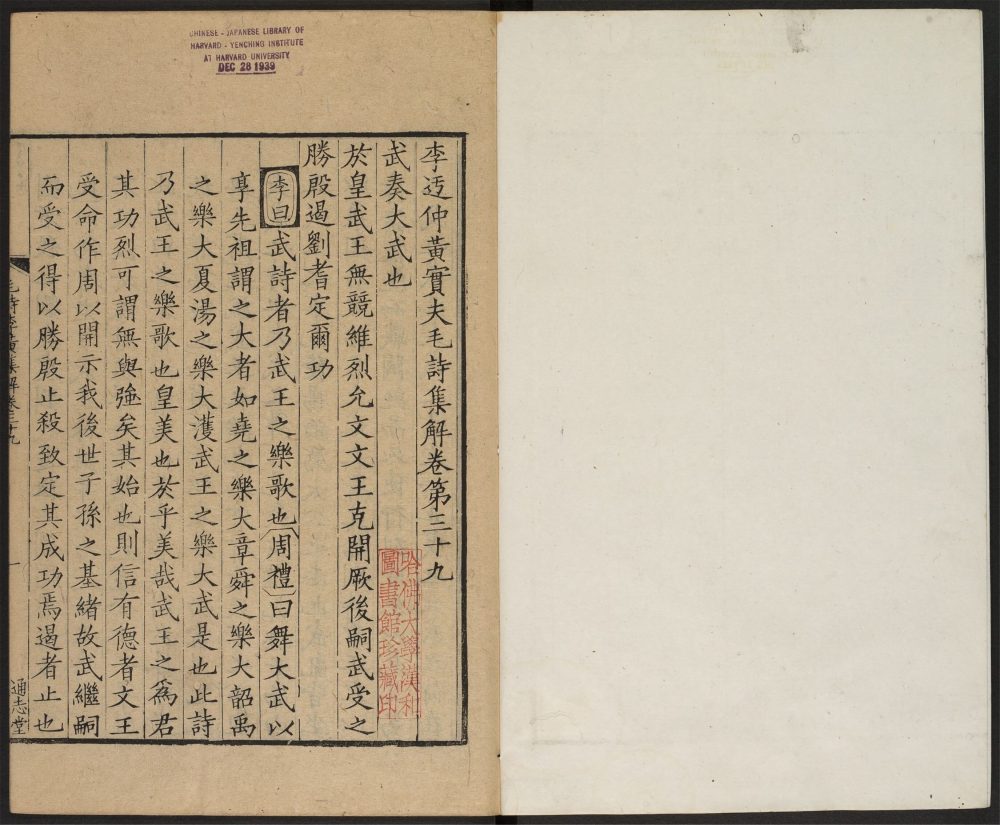 CHINESE - JAPANESE LIBRARY OF
HARVARD - YENCHING INSTITUTE
AT HARVARD UNIVERSITY
DEC 28 1939
李迃仲黃實夫毛詩集解卷第三十九
武奏大武也
於皇武王無競維烈允文文王克開厥後嗣武受之
勝殷遏劉耆定爾功
李曰武詩者乃武王之樂歌也周禮曰舞大武以
享先祖謂之大者如堯之樂大章舜之樂大韶禹
之樂大夏湯之樂大濩武王之樂大武是也此詩
乃武王之樂歌也皇美也於乎美哉武王之爲君
其功烈可謂無與強矣其始也則信有德者文王
受命作周以開示我後世子孫之基緒故武繼嗣
而受之得以勝殷止殺致定其成功焉遏者止也
毛詩李黃集解卷三十九
一
通志堂
哈佛大學漢和
圖書館珍藏印